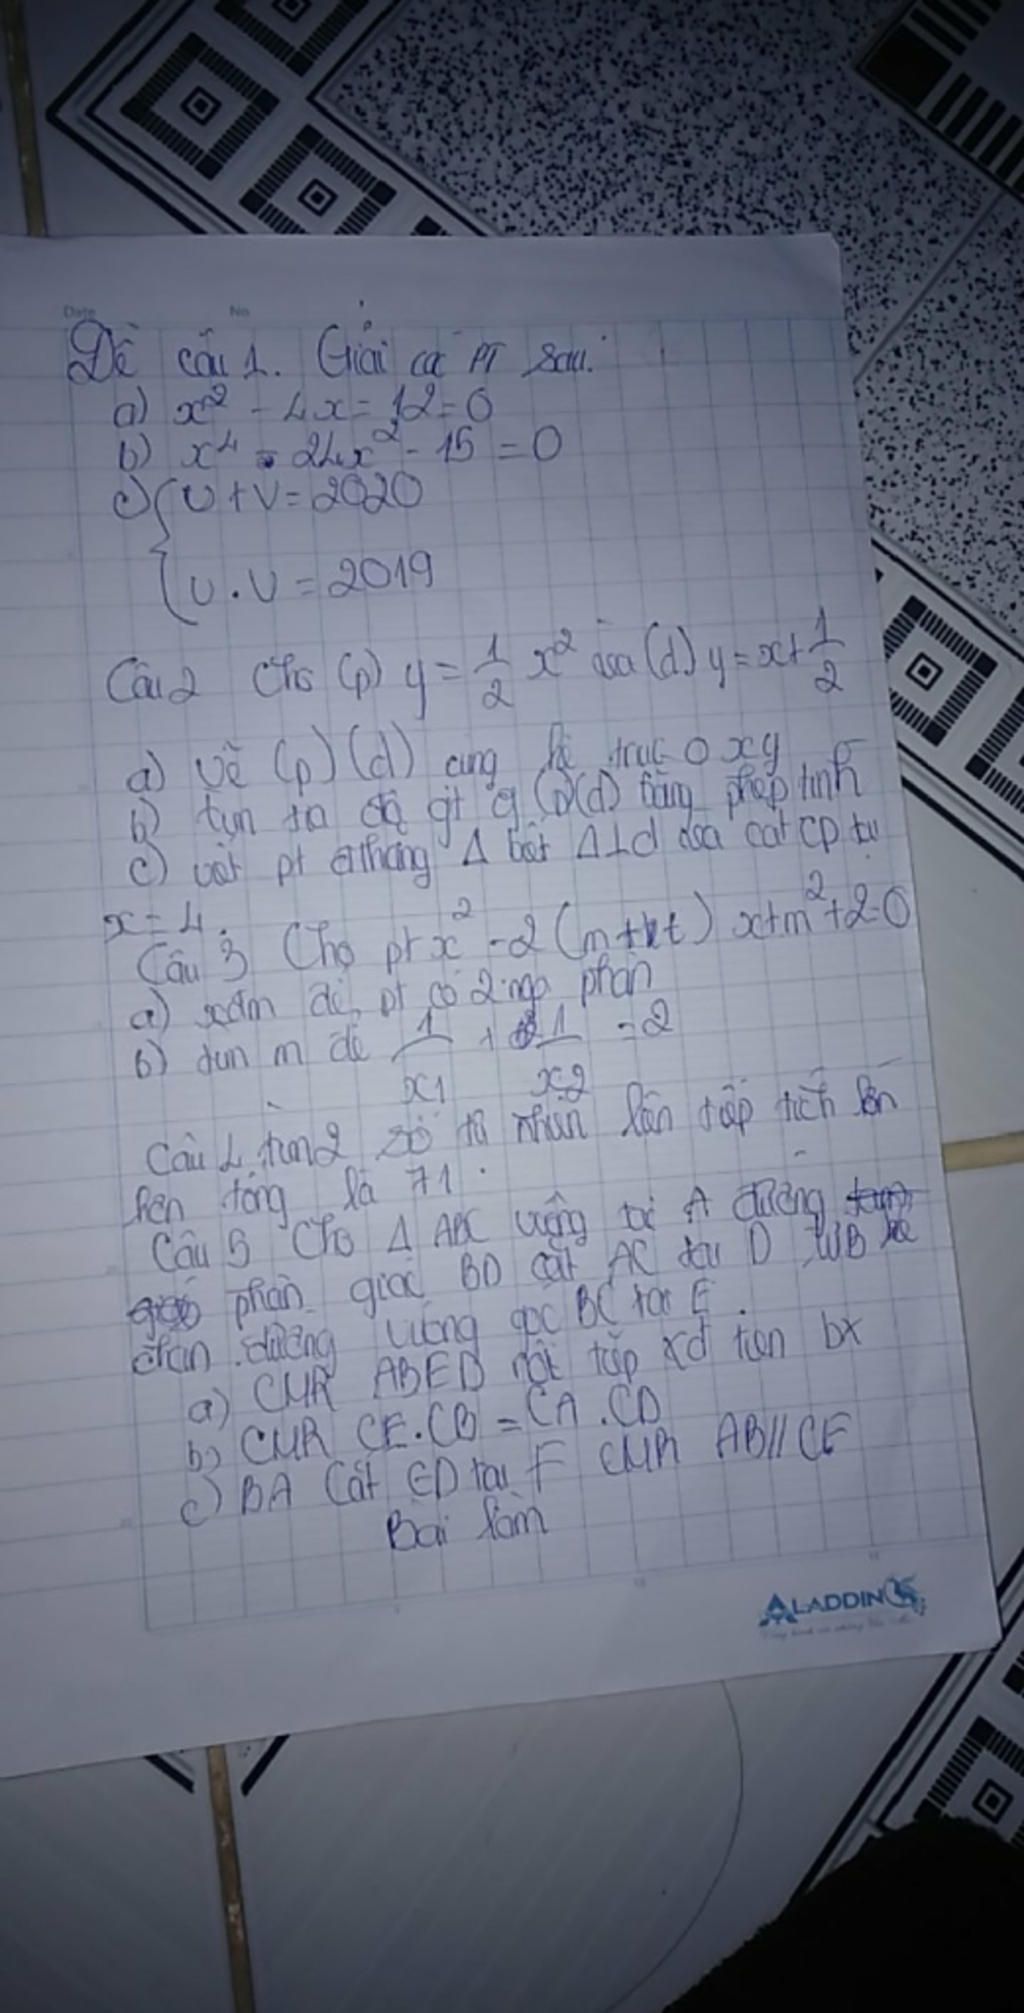 Date No
Đề câu 1. Giải cá PT sau.
a) x² - 4x = 12 = 0
b) x⁴ - 24x² - 15 = 0
c) { U + V = 2020
{ U . V = 2019
Câu 2 Cho (p) y = 1/2 x² (d) y = x + 1/2
a) Vẽ (p) (d) cùng hệ trục 0 xy
b) tìm tọa độ gt (p)(d) bằng phép tính
c) viết pt đ thẳng Δ biết Δ⊥d cắt CP tại
x = 4.
Câu 3 Cho pt x² - 2 (m + t) x + m² + 2 = 0
a) để pt có 2 ngo phân
b) tìm m để 1/x1 + 1/x2 = 2
Câu 4 tìm 2 số tự nhiên liên tiếp tích lớn
hơn tổng là 71.
Câu 5 Cho Δ ABC vuông tại A đường
phân giác BD cắt AC tại D
chân đường vuông góc BC tại E.
a) CMR ABED nội tiếp xđ
b) CMR CE.CB = CA.CD
c) BA Cắt ED tại F CMR AB // CF
Bài làm
ALADDIN